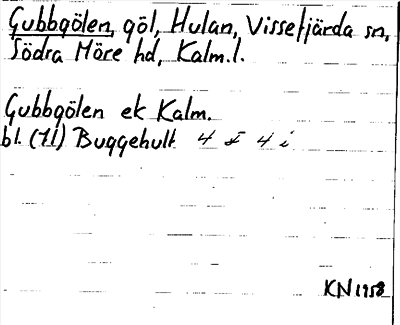 Gubbgölen, göl, Hulan, Vissefjärda sn,
Södra Möre hd, Kalm.l.
Gubbgölen ek Kalm.
bl. (71) Buggehult 4 I 4 i
KN 1958